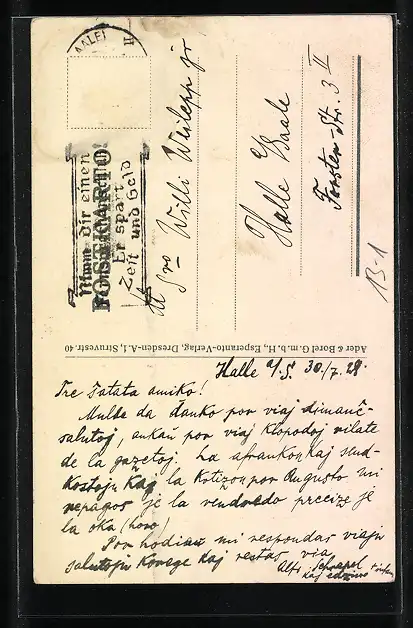 (SAALE)
II
Nimm dir einen
POSTKARTO!
Er spart
Zeit und Geld
Al Sro Willi Weilepp jr
Halle a/Saale
Forster-Str. 3 II
13-1
Ader & Borel G. m. b. H., Esperanto-Verlag, Dresden-A. 1, Struvestr. 40
Halle a/S. 30./7.28.
Tre ŝatata amiko!
Multe da danko por viaj dimanĉ-
salutoj, ankaŭ por viaj klopodoj rilate
de la gazetoj. La afrankon kaj send-
kostojn kaj la kotizon por Augusto mi
repagos je la vendredo precize je
la oka (horo)
Por hodiaŭ mi respondas viajn
salutojn korege kaj restas via
Alfr. Schrapel
kaj edzino